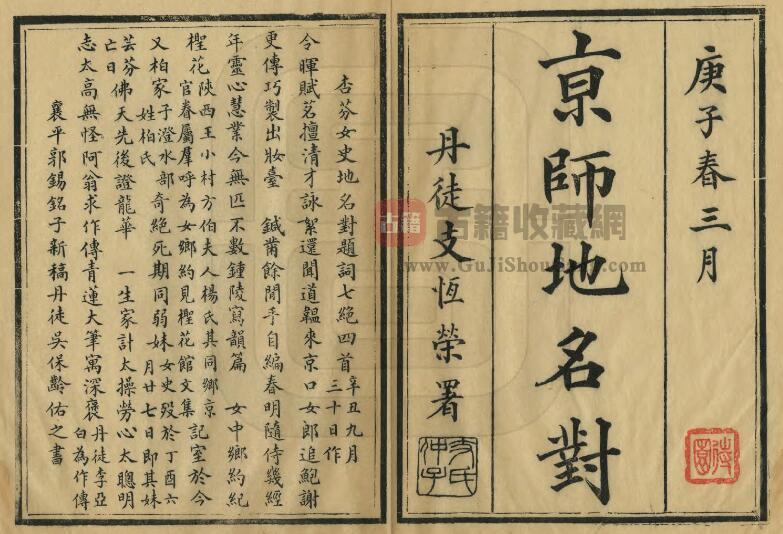 庚子春三月
京師地名對
丹徒支恆榮署
支氏仲子
杏芬女史地名對題詞七絕四首辛丑九月三十日作
令暉賦茗擅清才詠絮還聞道韞來京口女郎追鮑謝
更傳巧製出妝臺　鍼黹餘閒手自編春明隨侍幾經
年靈心慧業今無匹不數鍾陵寫韻篇　女中鄉約紀
檉花陝西王小村方伯夫人楊氏其同鄉京官眷屬羣呼為女鄉約見檉花館文集記室於今
又柏家子澄水部姓柏氏奇絕死期同弱妹女史歿於丁酉六月廿七日即其妹
芸芬亡日佛天先後證龍華　一生家計太操勞心太聰明
志太高無怪阿翁求作傳青蓮大筆寓深褒丹徒李亞白為作傳
襄平郭錫銘子新稿丹徒吳保齡佑之書
古籍
古籍收藏網